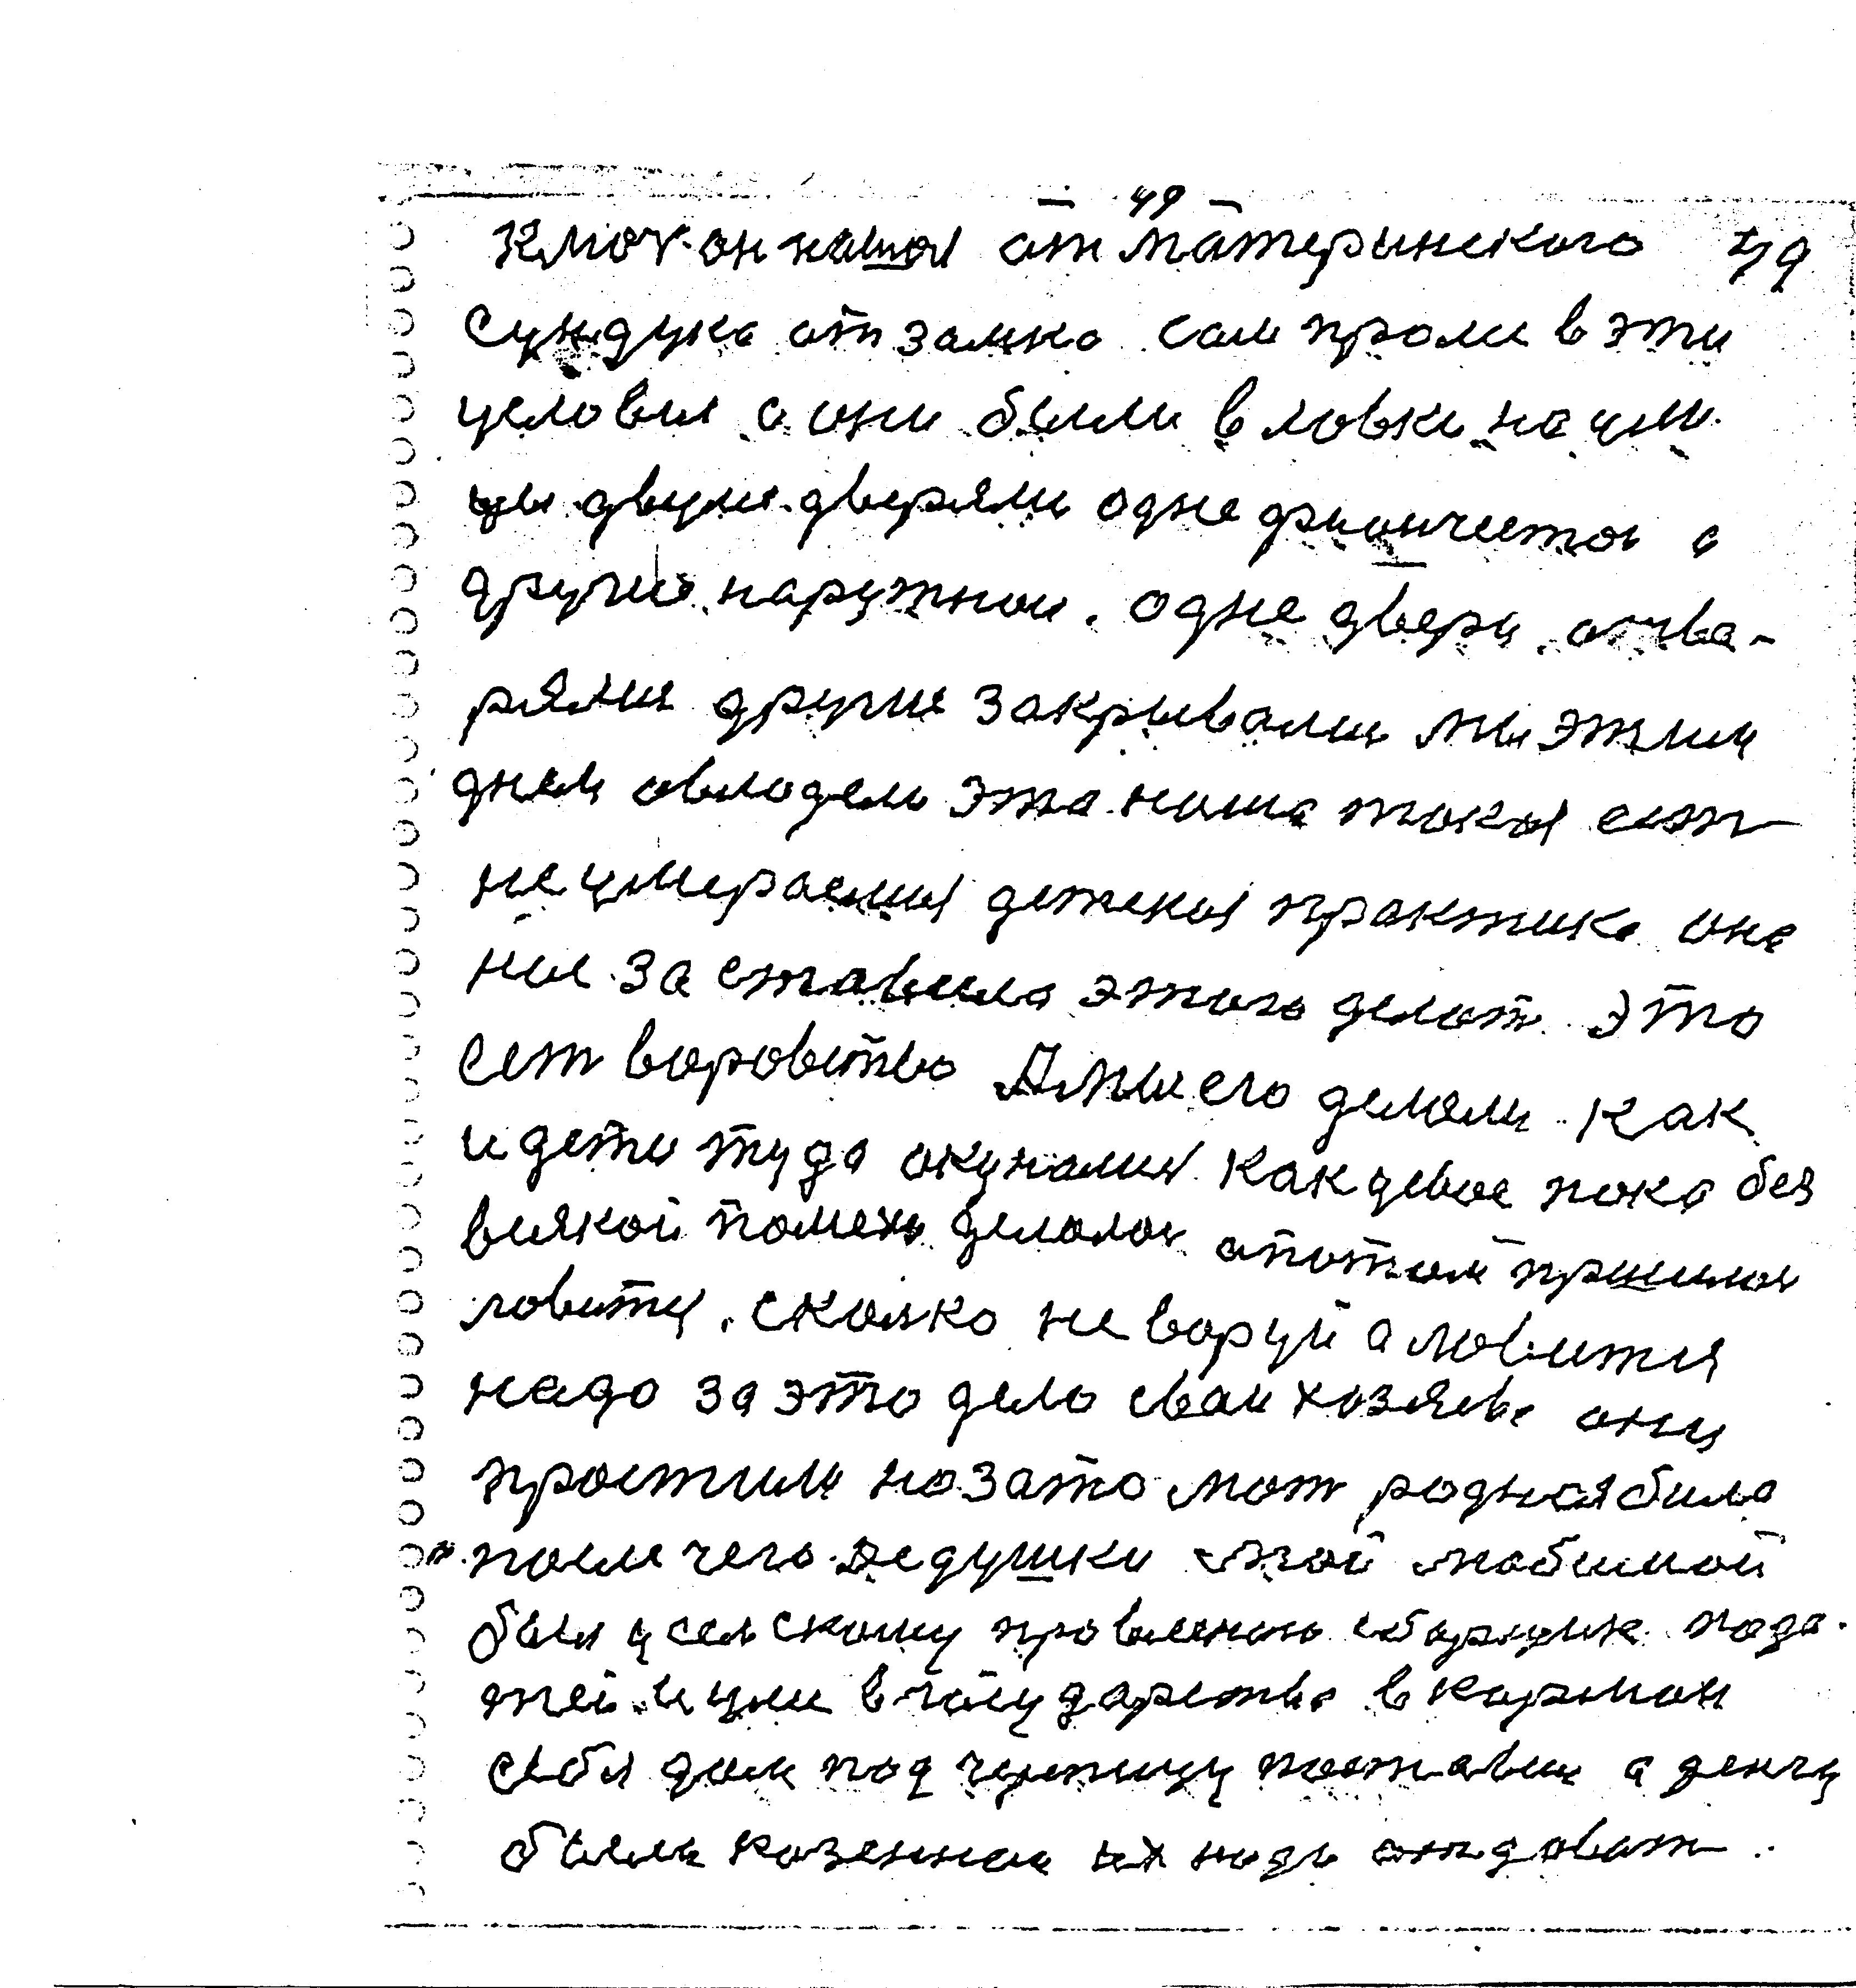 49
Ключ он нашол от материнского 49
сундука от замка сам пролис в эти
условия а они были в ловки на ули
цы двумя дверями одне фиончетои а
други наружнои. одне двери отва-
ряли други закрывали мы этим
днем овлодели эта наша такая ест
не умераемая детская практика она
нас заставила этого делат. это
ест воровство А мы его делали как
и дети туда окунались как двое пока без
всякой помехи делалос а потом пришлос
ловится, сколко не воруй а ловится
надо за это дело сваи хозяева они
простили но зато мат родная била
после чего дедушки мой любимой
был у селскому правлению сборщик пода-
тей и уме в государства в карман
себя дом под черепицу поставил а денги
были казенные их надо отдоват.